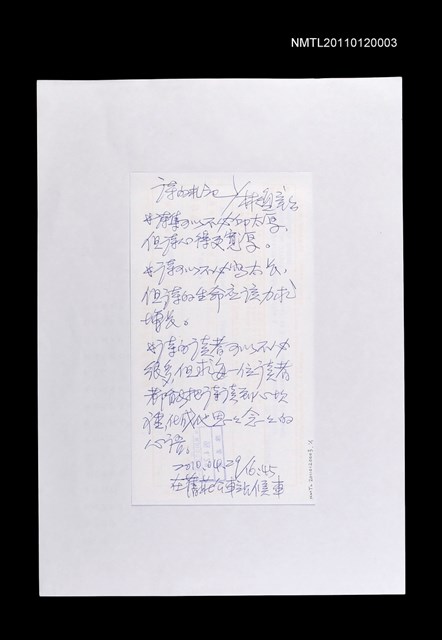 NMTL20110120003
詩的札記／林煥彰
★詩集可以不必印太厚,
但詩心得更寬厚。
★詩可以不必寫太長,
但詩的生命應該力求
增長。
★詩的讀者可以不必
很多,但求每一位讀者
都能把詩讀到心坎
裡,化成他思念的
心語。
2010.04.29/16:45
在舊莊公車站候車
NMTL20110120003